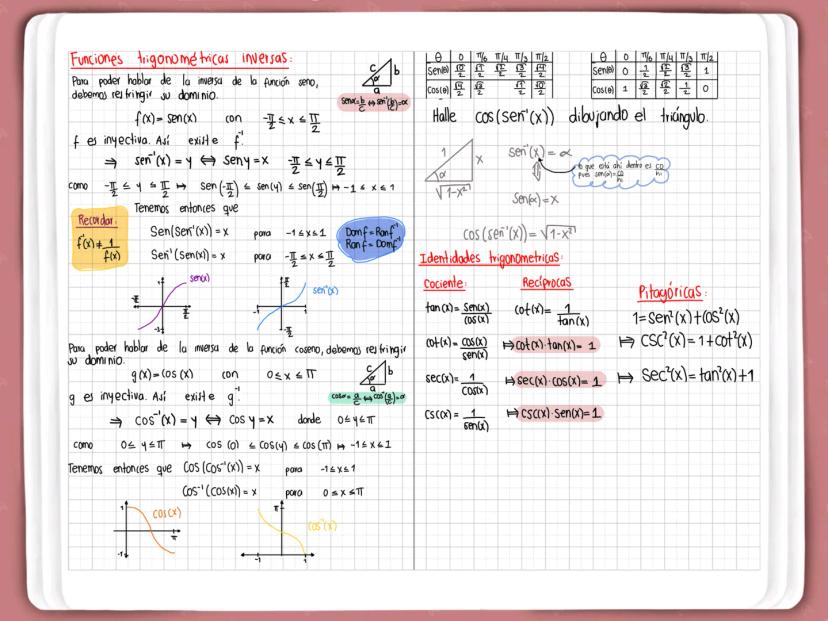 Funciones trigonométricas inversas:
Para poder hablar de la inversa de la función seno,
debemos restringir su dominio.
c b
α
a
senα = b/c ⇔ sen⁻¹(b/c) = α
f(x) = sen(x) con -π/2 ≤ x ≤ π/2
f es inyectiva. Así existe f⁻¹.
⇒ sen⁻¹(x) = y ⇔ sen y = x -π/2 ≤ y ≤ π/2
como -π/2 ≤ y ≤ π/2 ↦ sen(-π/2) ≤ sen(y) ≤ sen(π/2) ↦ -1 ≤ x ≤ 1
Tenemos entonces que
Recordar:
f⁻¹(x) ≠ 1/f(x)
Sen(Sen⁻¹(x)) = x para -1 ≤ x ≤ 1
Sen⁻¹(Sen(x)) = x para -π/2 ≤ x ≤ π/2
Dom f = Ran f⁻¹
Ran f = Dom f⁻¹
1 sen(x)
-π/2 π/2
-1
π/2 sen⁻¹(x)
-1 1
-π/2
Para poder hablar de la inversa de la función coseno, debemos restringir
su dominio.
g(x) = cos(x) con 0 ≤ x ≤ π
c b
α
a
cosα = a/c ⇔ cos⁻¹(a/c) = α
g es inyectiva. Así existe g⁻¹.
⇒ cos⁻¹(x) = y ⇔ cos y = x donde 0 ≤ y ≤ π
como 0 ≤ y ≤ π ↦ cos(0) ≤ cos(y) ≤ cos(π) ↦ -1 ≤ x ≤ 1
Tenemos entonces que cos(cos⁻¹(x)) = x para -1 ≤ x ≤ 1
cos⁻¹(cos(x)) = x para 0 ≤ x ≤ π
1 cos(x)
π
-1
π cos⁻¹(x)
-1 1
θ 0 π/6 π/4 π/3 π/2
Sen(θ) √0/2 √1/2 √2/2 √3/2 √4/2
Cos(θ) √4/2 √3/2 √2/2 √1/2 √0/2
θ 0 π/6 π/4 π/3 π/2
Sen(θ) 0 1/2 √2/2 √3/2 1
Cos(θ) 1 √3/2 √2/2 1/2 0
Halle cos(sen⁻¹(x)) dibujando el triángulo.
1 x
α
√1-x²
sen⁻¹(x) = α
lo que está ahí dentro es CO/hi
pues sen(α) = CO/hi
Sen(α) = x
cos(sen⁻¹(x)) = √1-x²
Identidades trigonometricas:
Cociente:
tan(x) = sen(x)/cos(x)
cot(x) = cos(x)/sen(x)
sec(x) = 1/cos(x)
csc(x) = 1/sen(x)
Recíprocas
cot(x) = 1/tan(x)
↦ cot(x)·tan(x) = 1
↦ sec(x)·cos(x) = 1
↦ csc(x)·sen(x) = 1
Pitagóricas:
1 = sen²(x) + cos²(x)
↦ csc²(x) = 1 + cot²(x)
↦ sec²(x) = tan²(x) + 1